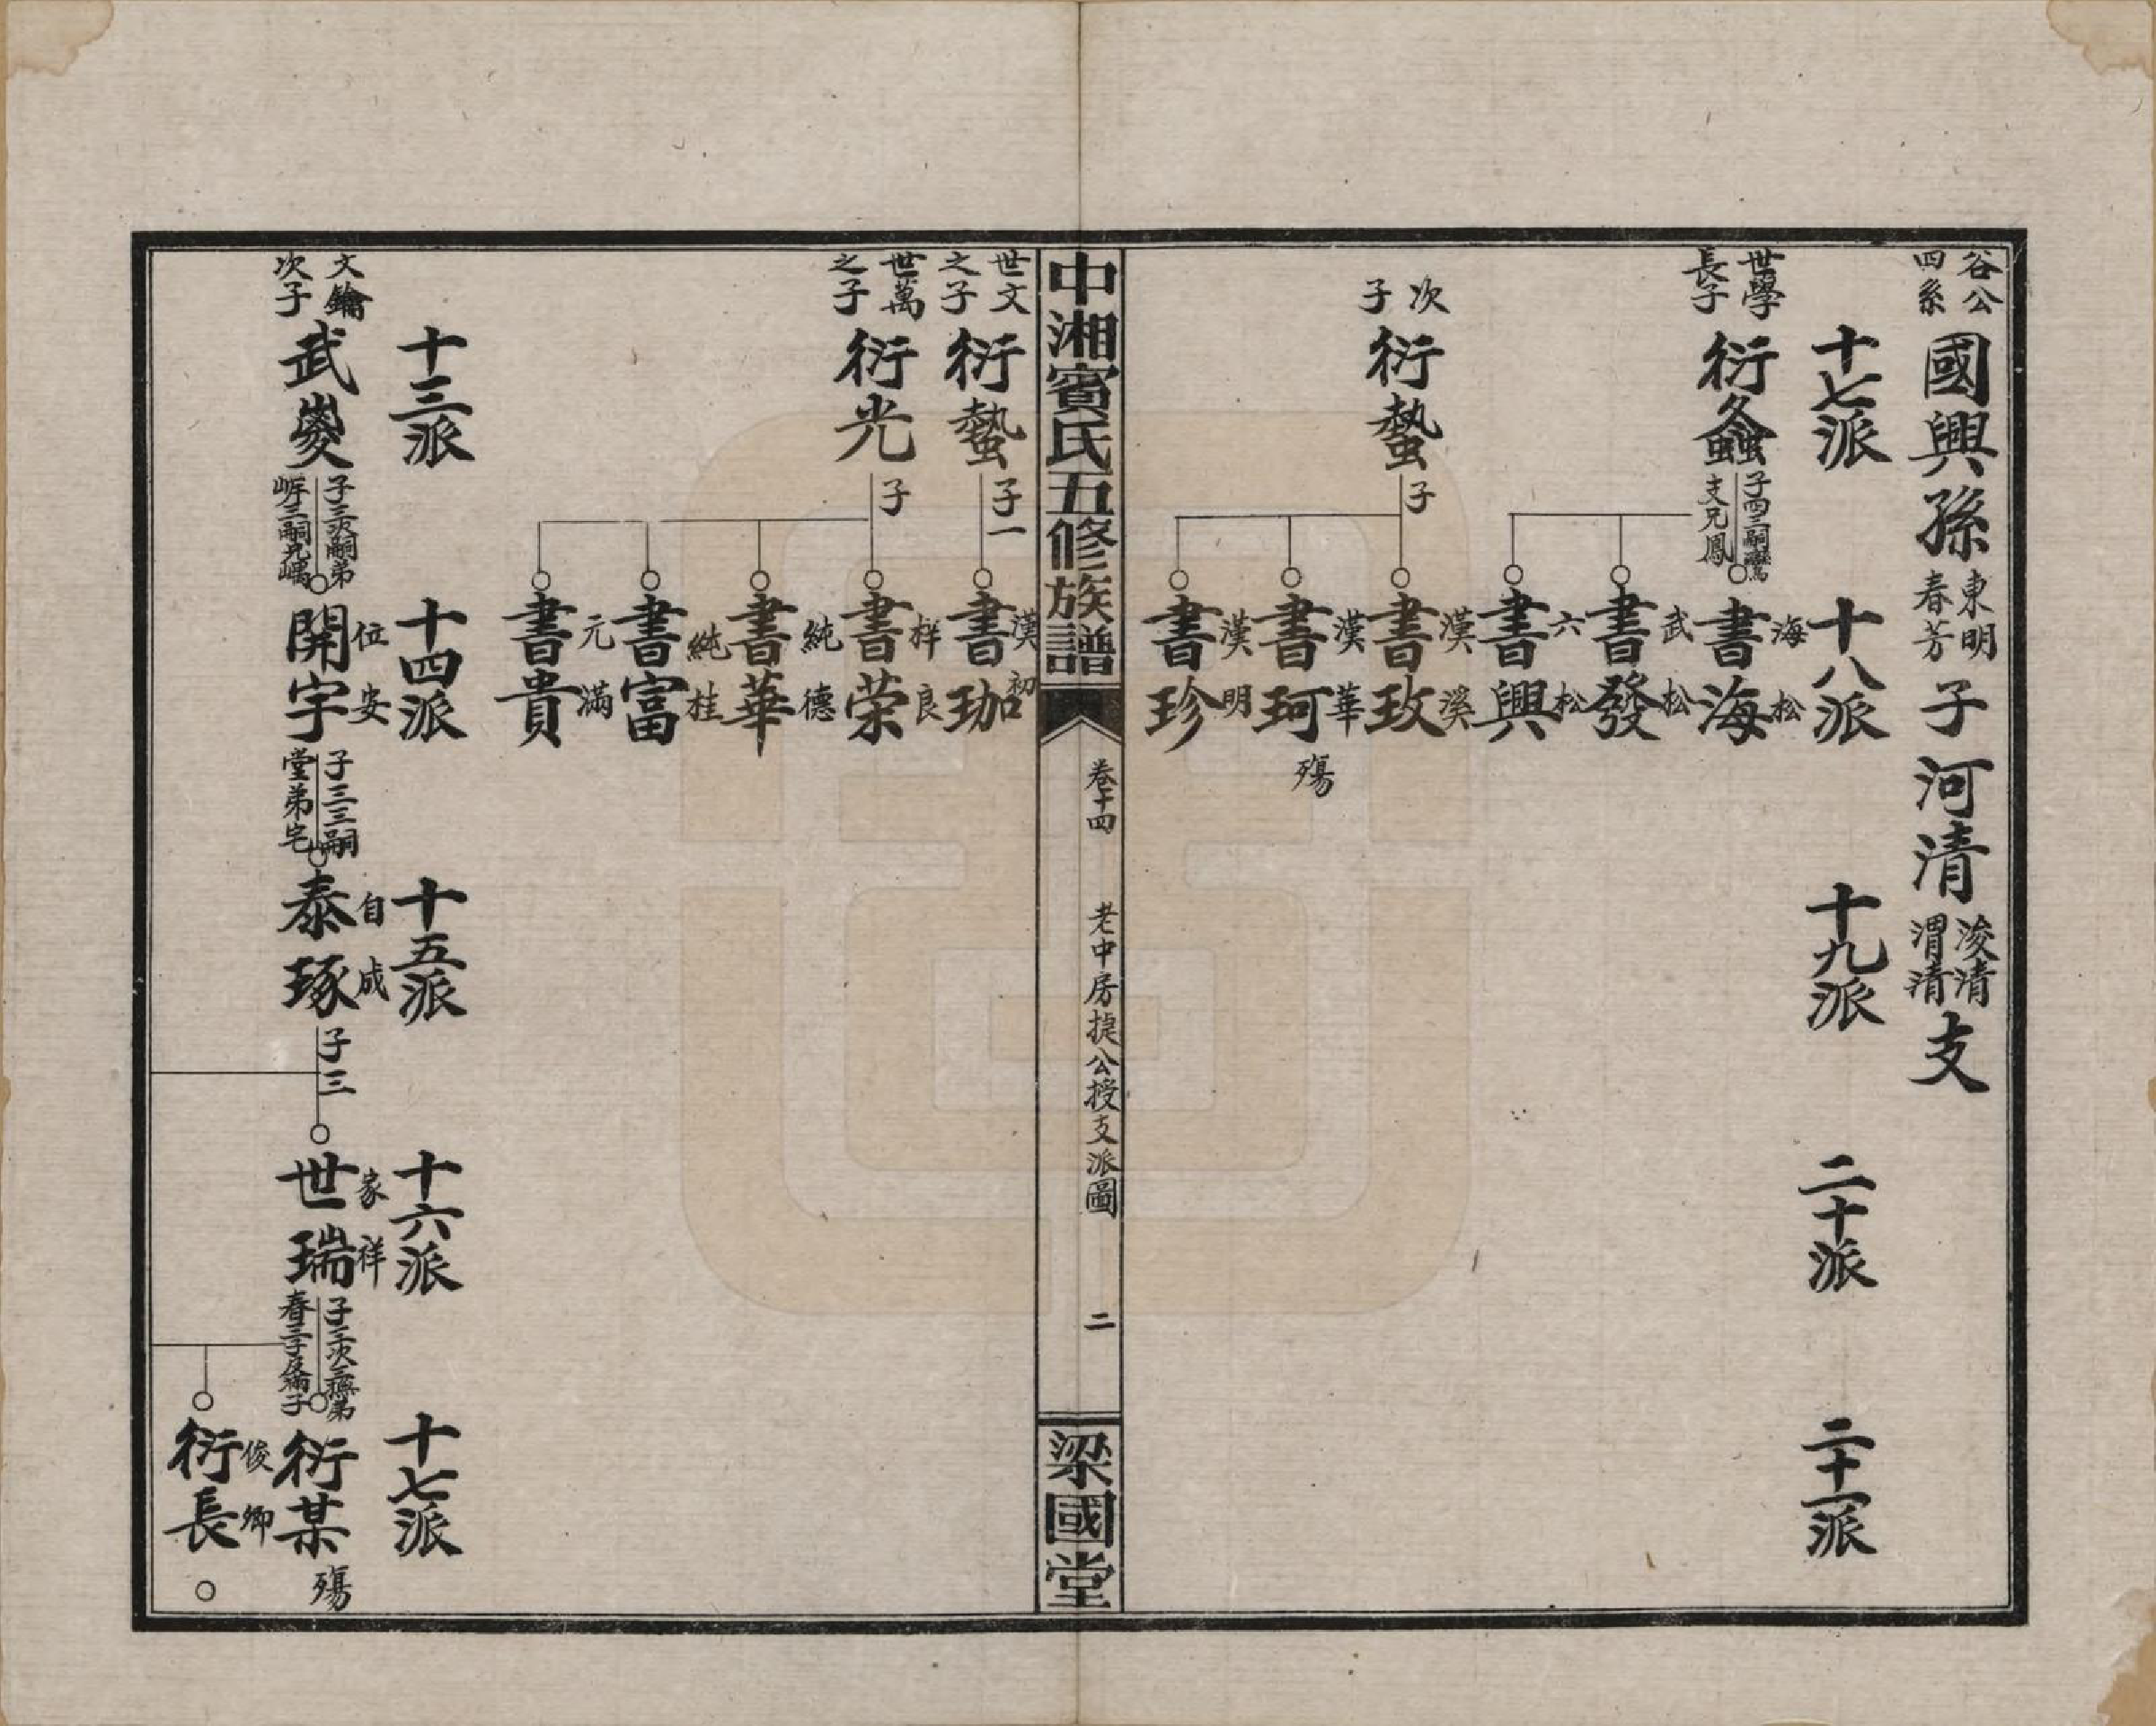 谷公
四系
國興孫
東明
春芳
子
河清
浚清
渭清
支
十七派
十八派
十九派
二十派
二十一派
世學
長子
衍螽
子四三嗣
支兄鳳
海松
書海
武松
書發
六松
書興
次
子
衍蟄
子
漢溪
書玫
漢華
書珂
殤
漢明
書珍
中湘賓氏五修族譜
卷十四
老中房㨗公授支派圖
二
梁國堂
世文
之子
衍蟄
子一
漢初
書珈
世萬
之子
衍光
子
祥良
書荣
純德
書華
純桂
書富
元滿
書貴
十三派
十四派
十五派
十六派
十七派
文鑰
次子
武㚇
子三次嗣弟
三嗣兄
位安
開宇
子三三嗣
堂弟宅
自成
泰琢
子三
家祥
世瑞
衍某
殤
俊卿
衍長